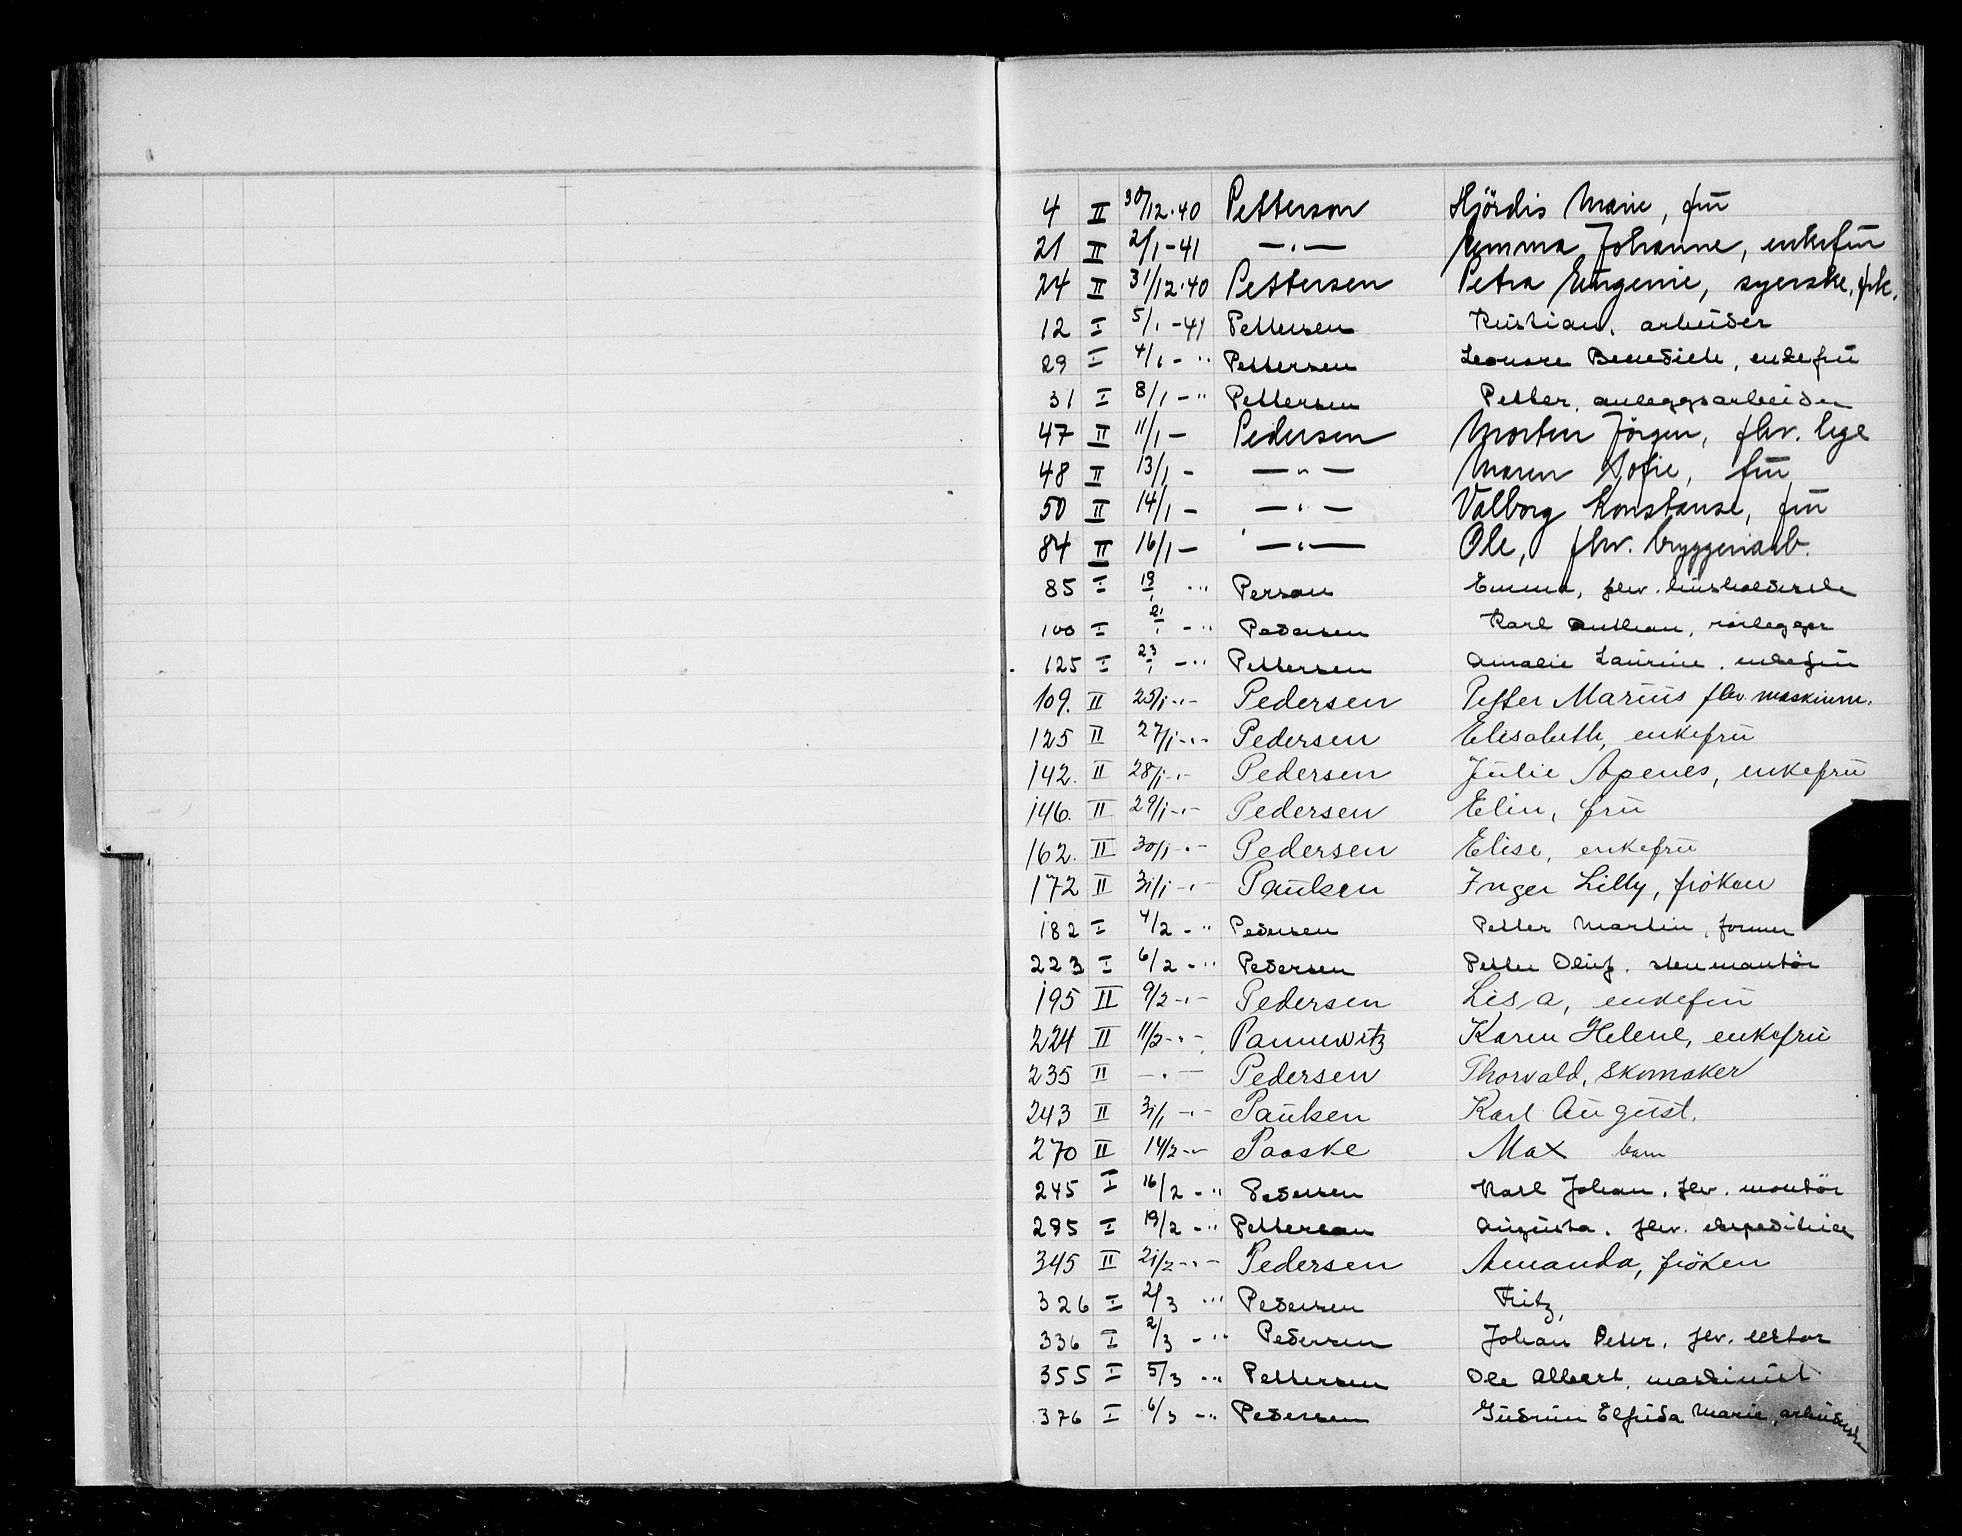 4 II 30/12-40 Petterson Hjördis Marie, frü
21 II 2/1-41 —„— Emma Johanne, enkefrü
24 II 31/12-40 Pettersen Petra Eugenie, syerske, frk.
12 I 5/1-41 Pettersen Kristian, arbeider
29 I 4/1-" Pettersen Leonore Benedicte, enkefrü
31 I 8/1-" Pettersen Petter, anleggsarbeider
47 II 11/1- Pedersen Morten Jörgen, fhv. lege
48 II 13/1- —„— Maren Sofie, frü
50 II 14/1- —„— Valborg Konstanse, frü
84 II 16/1- —„— Ole, fhv. bryggeriarb.
85 I 19/1 -" Person Emma, fhv. hüsholderske
100 I 21/1 -" Pedersen Karl Anthon, rörlegger
125 I 23/1 -" Pettersen Amalie Laurine, enkefrü
109. II 25/1-„- Pedersen Petter Marius fhv. maskinm.
125 II 27/1-„- Pedersen Elisabeth, enkefrü
142. II 28/1-„- Pedersen Julie Apenes, enkefrü
146. II 29/1-„- Pedersen Elin, frü
162. II 30/1-„- Pedersen Elise, enkefrü
172 II 31/1-„- Paulsen Inger Lilly, fröken
182 I 4/2-" Pedersen Petter Martin, former
223 I 6/2-" Pedersen Petter Oluf, montör
195 II 9/2-„- Pedersen Lisa, enkefrü
224 II 11/2-„- Pannewitz Karen Helene, enkefrü
235 II —„— Pedersen Thorvald, skomaker
243 II 31/1-„- Paulsen Karl August.
270 II 14/2-„- Paaske Max barn
245 I 16/2-" Pedersen Karl Johan, fhv. montör
295 I 19/2-" Petterson Augusta, fhv. ekspeditrice
345 II 21/2-„- Pedersen Amanda, fröken
326 I 2/3 -" Pedersen Fritz,
336 I 2/3 -" Pedersen Johan Peter, fhv.
355 I 5/3 -" Pettersen Ole Albert, maskinist
376 I 6/3 -" Pedersen Gudrun Elfrida Marie, arbeiderske